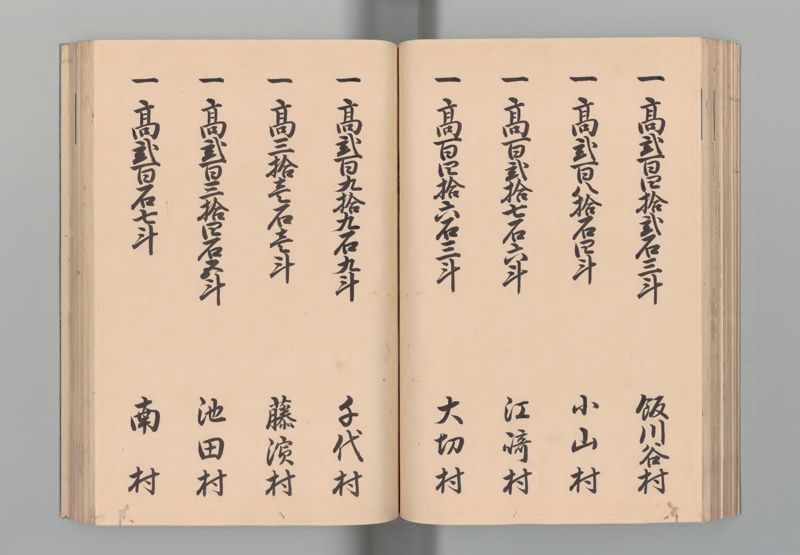 一高弐百四拾弐石三斗 飯川谷村
一高弐百八拾石四斗 小山村
一高百弐拾七石六斗 江﨑村
一高百四拾六石三斗 大切村
一高弐百九拾九石九斗 千代村
一高三拾壱石壱斗 藤濱村
一高弐百三拾四石五斗 池田村
一高弐百石七斗 南村